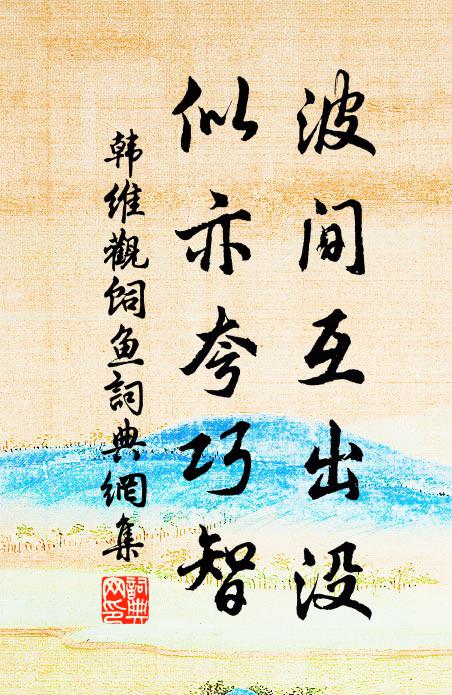 波间互出没
似亦夸巧智
韩维觀饲鱼詞典網集